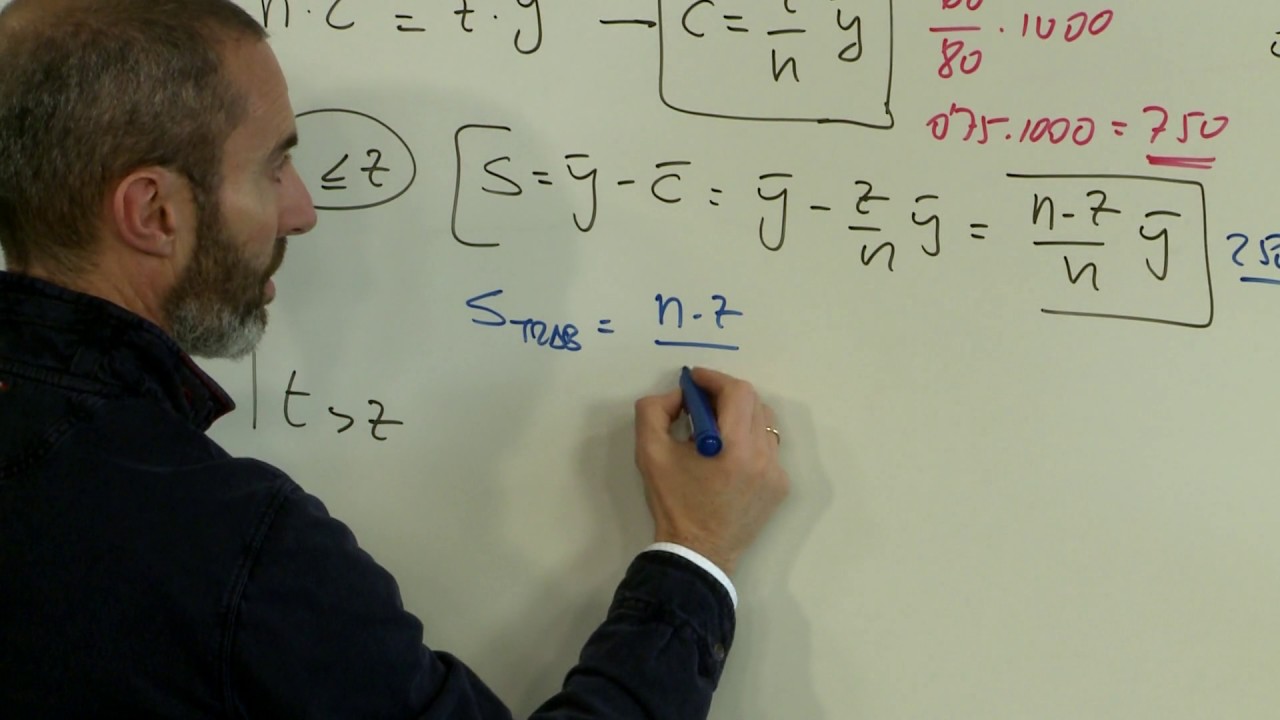 n · c = z · y — c = z/n y
60/80 · 1000
0'75 · 1000 = 750
≤ z
S = ȳ - c̄ = ȳ - z/n ȳ = n - z/n ȳ
250
S TRAB = n - z
t > z